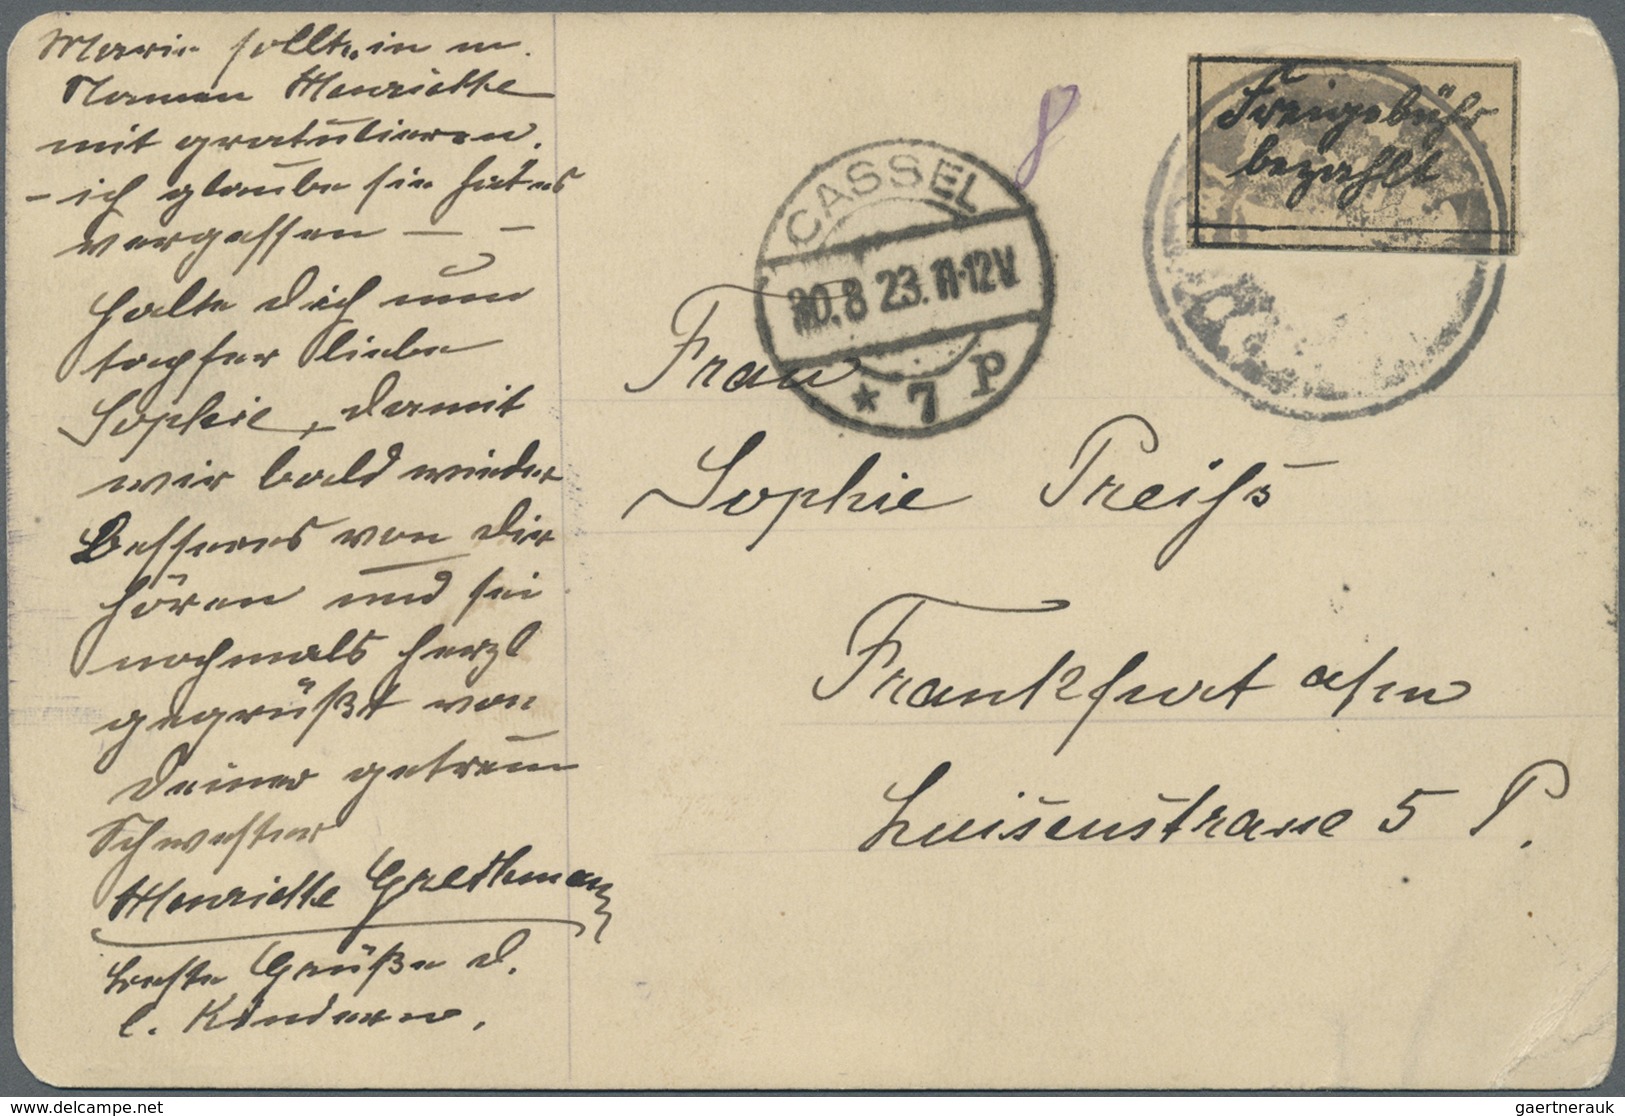 Marie sollte in m.
Namen Henriette
mit gratulieren.
- ich glaube sie hat es
vergessen — –
halte dich nun
tapfer liebe
Sophie, damit
wir bald wieder
Besseres von Dir
hören und sei
nochmals herzl
gegrüßt von
Deiner getreuen
Schwester
Henriette
beste Grüße d.
l. Kindern.
8
CASSEL
30.8 23. 11-12V
* 7 p
Freigebühr
bezahlt
Frau
Sophie Preiss
Frankfurt a/m
Luisenstrasse 5 P.
gaertnerauk